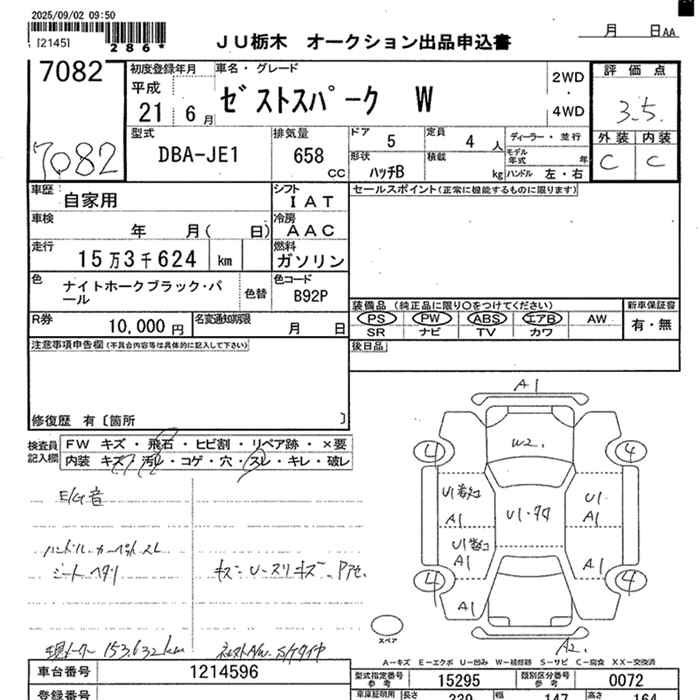 2025/09/02 09:50
[2145] 286*
JU栃木 オークション出品申込書
月 日AA
7082
7082
初度登録年月
平成
21 6月
車名・グレード
ゼストスパーク W
2WD
・
4WD
評価点
3.5
外装 内装
C C
型式
DBA-JE1
排気量
658 CC
ドア 5
定員 4人
ディーラー・並行
形状 ハッチB
積載 kg
モデル年式 年
ハンドル 左・右
車歴: 自家用
シフト IAT
セールスポイント(正常に機能するものに限ります)
車検 年 月( 日)
冷房 AAC
走行 15万3千624 km
燃料 ガソリン
色 ナイトホークブラック・パール
色替
色コード B92P
R券 10,000円
名変通知期限 月 日
装備品 (純正品に限り○をつけてください)
PS PW ABS エアB AW
SR ナビ TV カワ
新車保証書
有・無
注意事項申告欄(不具合内容等は具体的に記入して下さい)
後日品
修復歴 有〔箇所 〕
検査員記入欄
FW キズ・飛石・ヒビ割・リペア跡・×要
内装 キズ・汚レ・コゲ・穴・スレ・キレ・破レ
E/G音
ハンドル・カーペットスレ
シートヘタリ
現メーター 153,632km
A1
W2
4 4
U1
A1
U1
A1
U1
A1
A1
4 4
A1
A2
スペア
A-キズ E-エクボ U-凹み W-補修跡 S-サビ C-腐食 XX-交換済
車台番号 1214596
型式指定番号 参考 15295
類別区分番号 参考 0072
登録番号
車庫証明用
長さ 339
幅 147
高さ 164